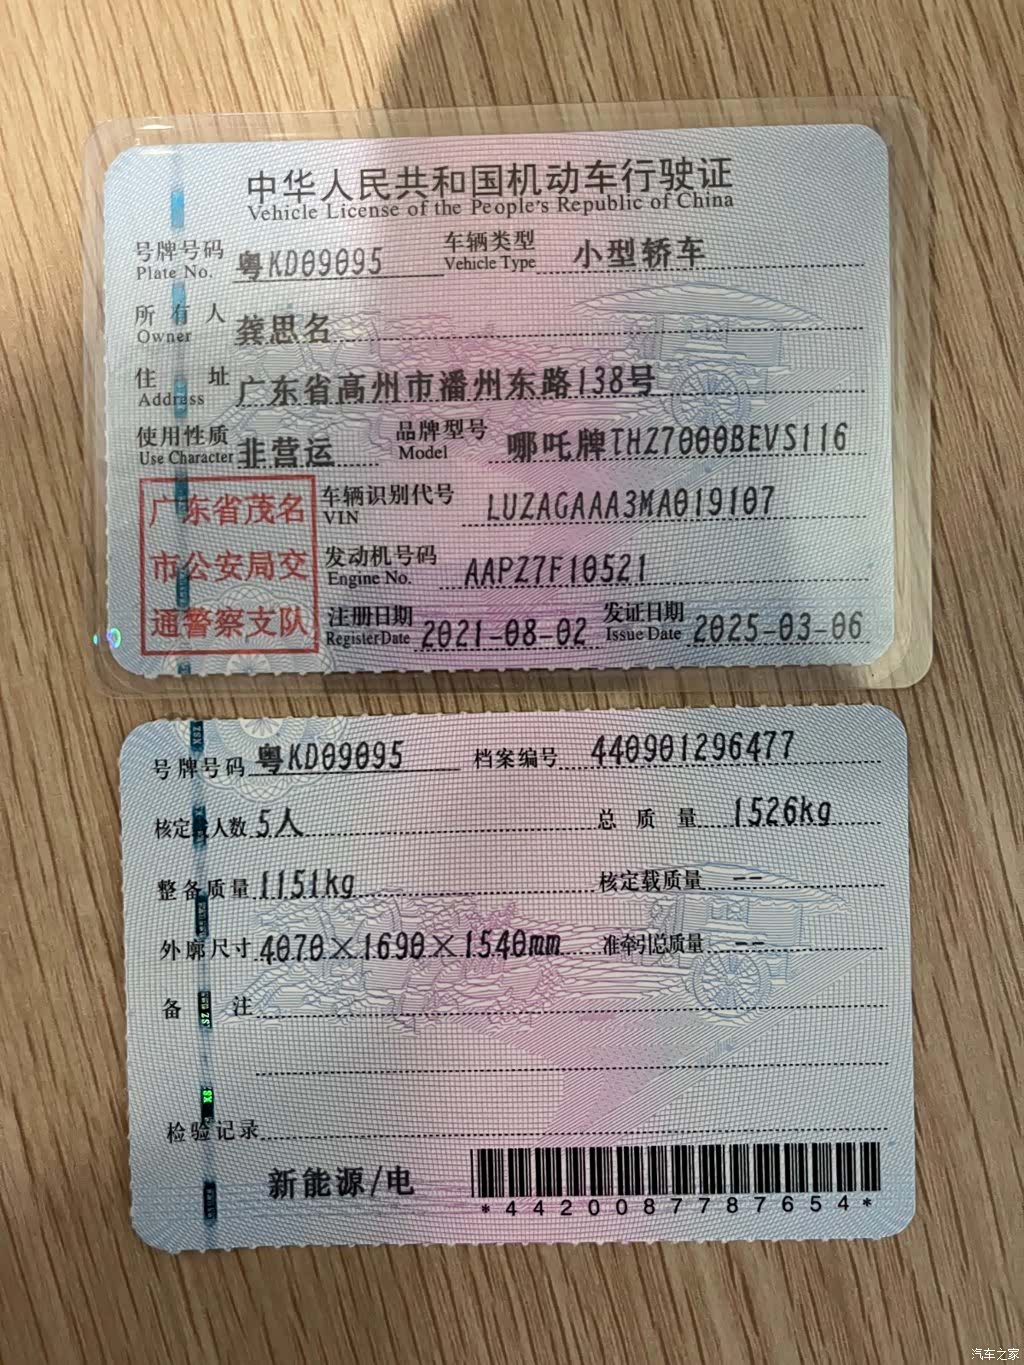 中华人民共和国机动车行驶证
Vehicle License of the People's Republic of China
号牌号码 粤KD09095 车辆类型 小型轿车
Plate No. Vehicle Type
所有人 龚思名
Owner
住址 广东省高州市潘州东路138号
Address
使用性质 非营运 品牌型号 哪吒牌THZ7000BEVS116
Use Character Model
广东省茂名
市公安局交
通警察支队
车辆识别代号 LUZAGAAA3MA019107
VIN
发动机号码 AAPZ7F10521
Engine No.
注册日期 2021-08-02 发证日期 2025-03-06
Register Date Issue Date
号牌号码 粤KD09095 档案编号 440901296477
核定载人数 5人 总质量 1526kg
整备质量 1151kg 核定载质量 --
外廓尺寸 4070×1690×1540mm 准牵引总质量 --
备注
检验记录
新能源/电
*4420087787654*
汽车之家